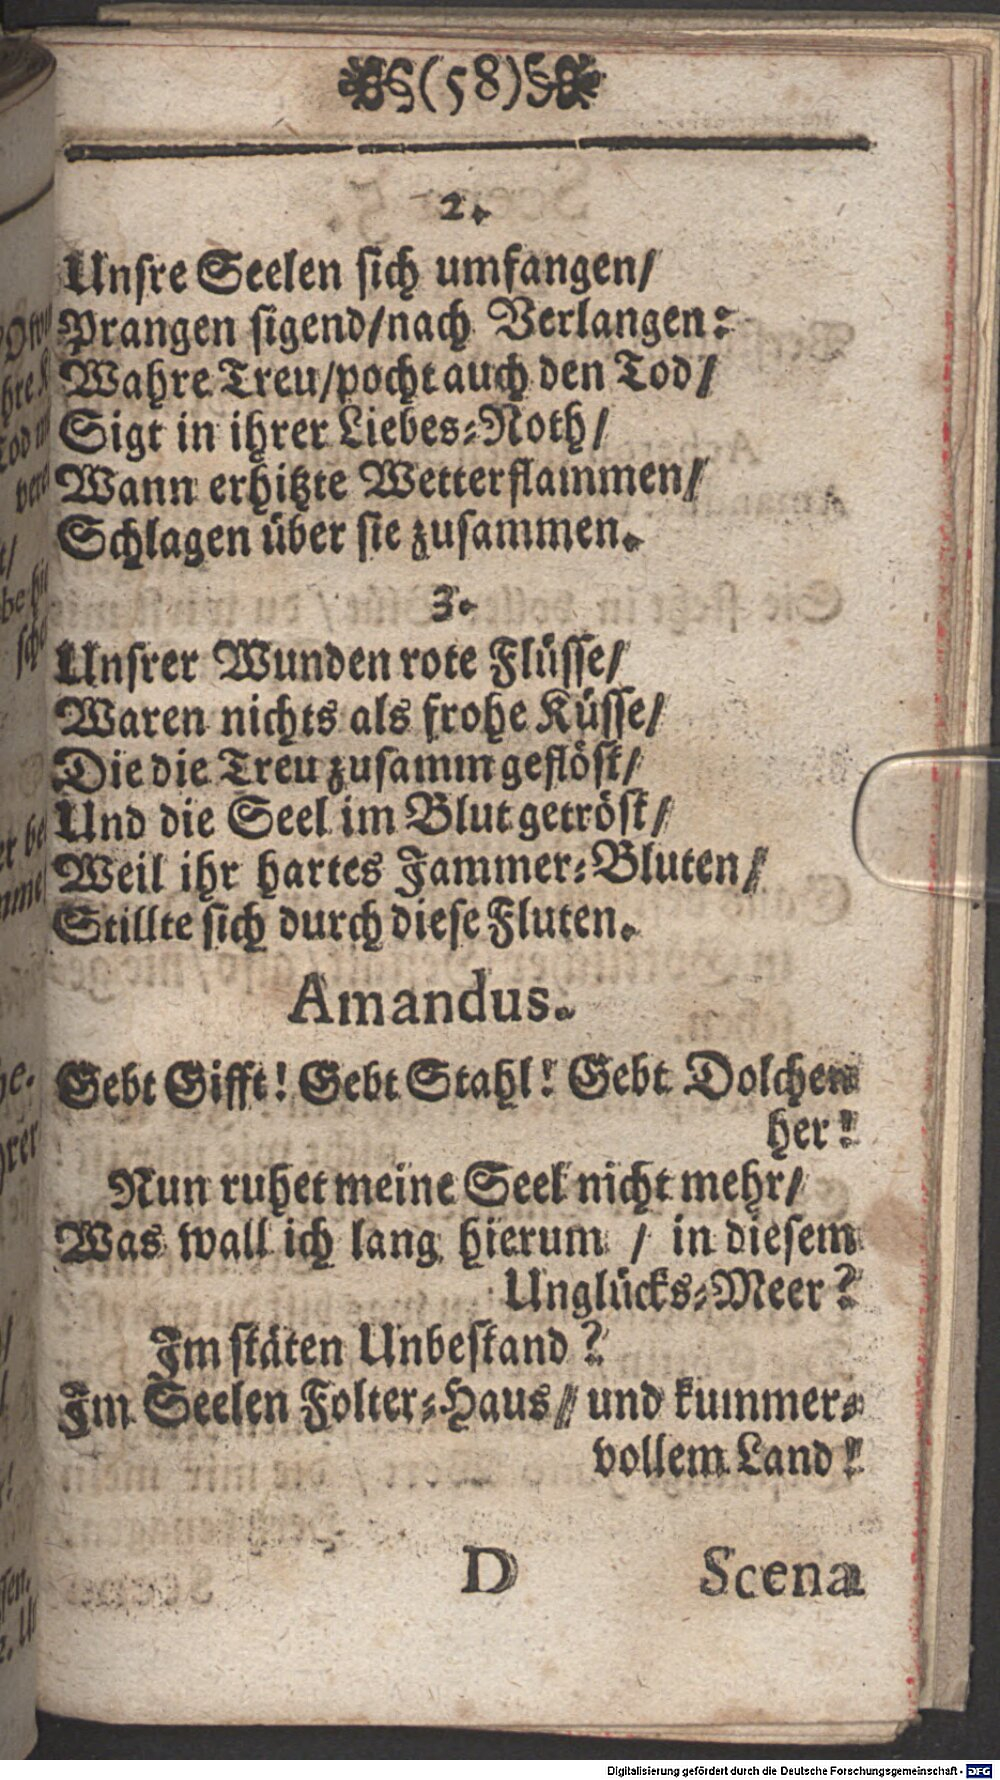 (58)
2.
Unsre Seelen sich umfangen/
Prangen sigend/nach Verlangen:
Wahre Treu/pocht auch den Tod/
Sigt in ihrer Liebes-Noth/
Wann erhitzte Wetterflammen/
Schlagen über sie zusammen.
3.
Unsrer Wunden rote Flüsse/
Waren nichts als frohe Küsse/
Die die Treu zusamm geflöst/
Und die Seel im Blut getröst/
Weil ihr hartes Jammer-Bluten/
Stillte sich durch diese Fluten.
Amandus.
Gebt Gifft! Gebt Stahl! Gebt Dolchen
her!
Nun ruhet meine Seel nicht mehr/
Was wall ich lang hierum / in diesem
Unglücks-Meer?
Im stäten Unbestand?
Im Seelen Folter-Haus/ und kummer-
vollem Land!
D Scena
Digitalisierung gefördert durch die Deutsche Forschungsgemeinschaft - DFG